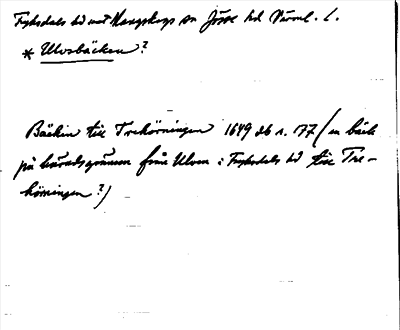 Fryksdals hd mot Mangskogs sn Jösse hd Värml. l.
* Ulvsbäcken?
Bäcken till Trehörningen 1649 db s. 77 (en bäck
på häradsgränsen från Ulven i Fryksdals hd till Tre-
hörningen?)